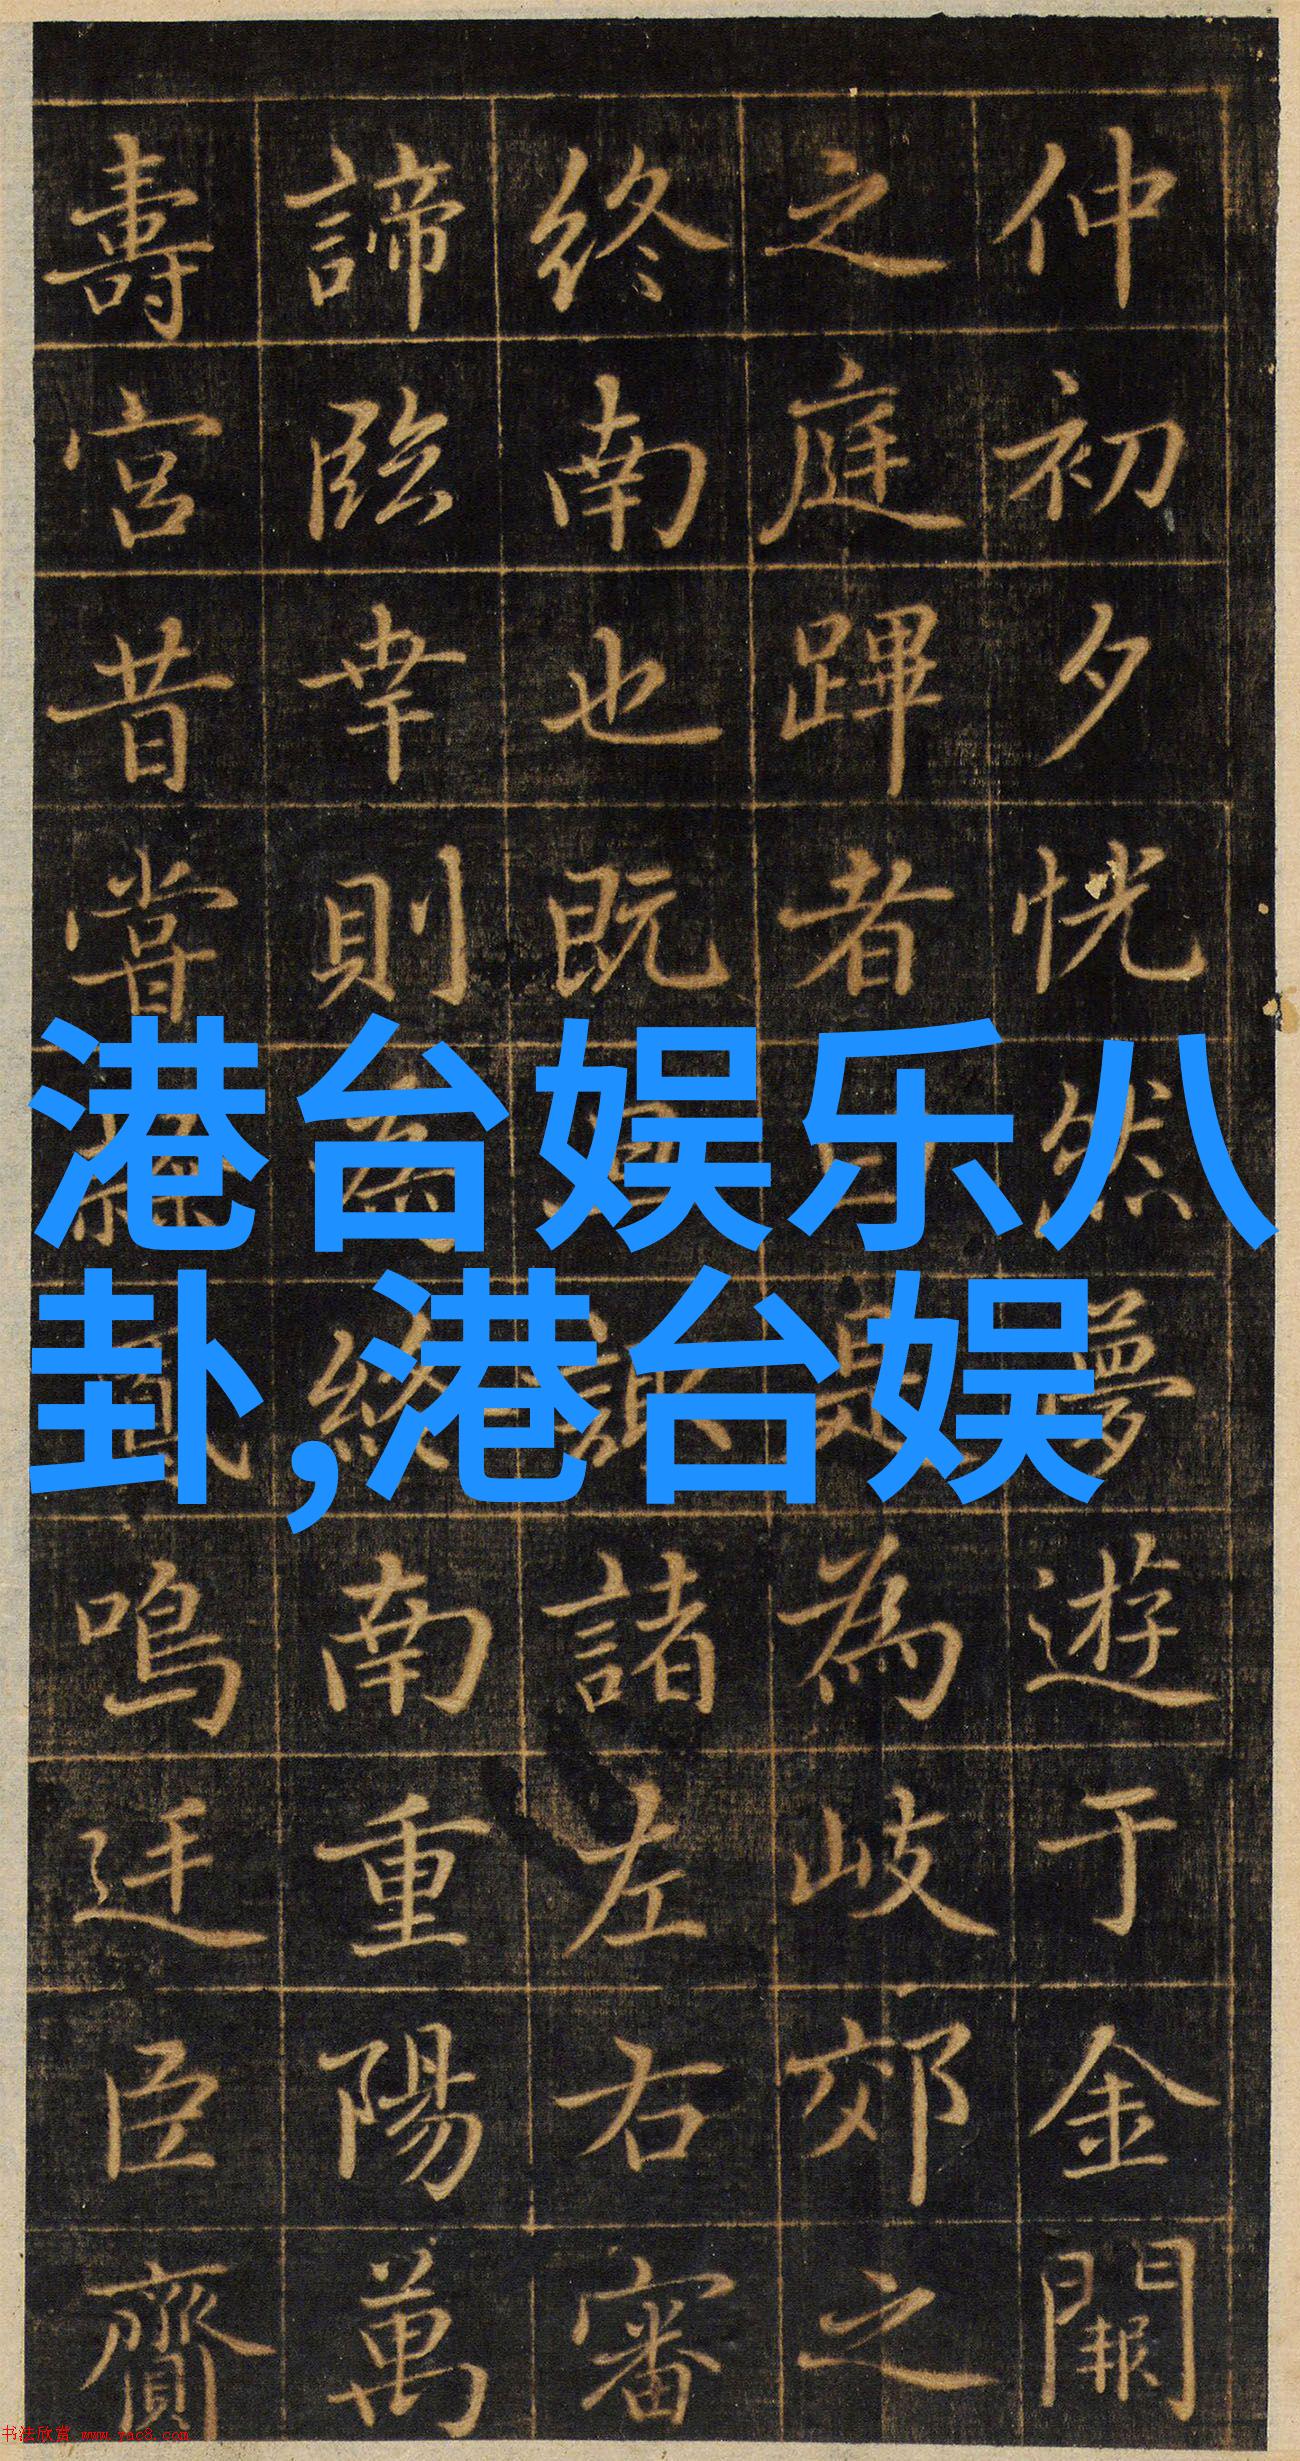 仲初夕恍然夢遊于金闕
之庭蹕者為岐郊之
終南也既諸左右審
諦臨幸則為終南重陽萬
壽宮昔嘗鳴迓臣齎
港台娱乐八
卦,港台娱
书法欣赏 www.yac8.com